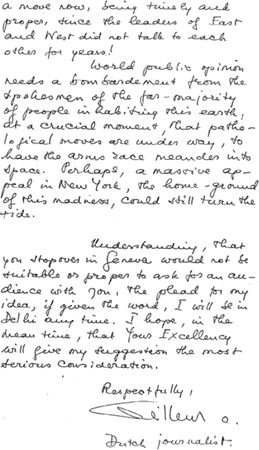 a move now, being timely and
proper, since the leaders of East
and West did not talk to each
other for years!
World public opinion
needs a bombardement from the
spokesmen of the far-majority
of people inhabiting this earth,
at a crucial moment, that patho-
logical moves are under way, to
have the arms race meander into
space. Perhaps, a massive ap-
peal in New York, the home-ground
of this madness, could still turn the
tide.
Understanding, that
you stopover in Geneva would not be
suitable or proper to ask for an au-
dience with you, the plead for my
idea, if given the word, I will be in
Delhi any time. I hope, in the
mean time, that Your Excellency
will give my suggestion the most
serious consideration.
Respectfully,
Dutch journalist.